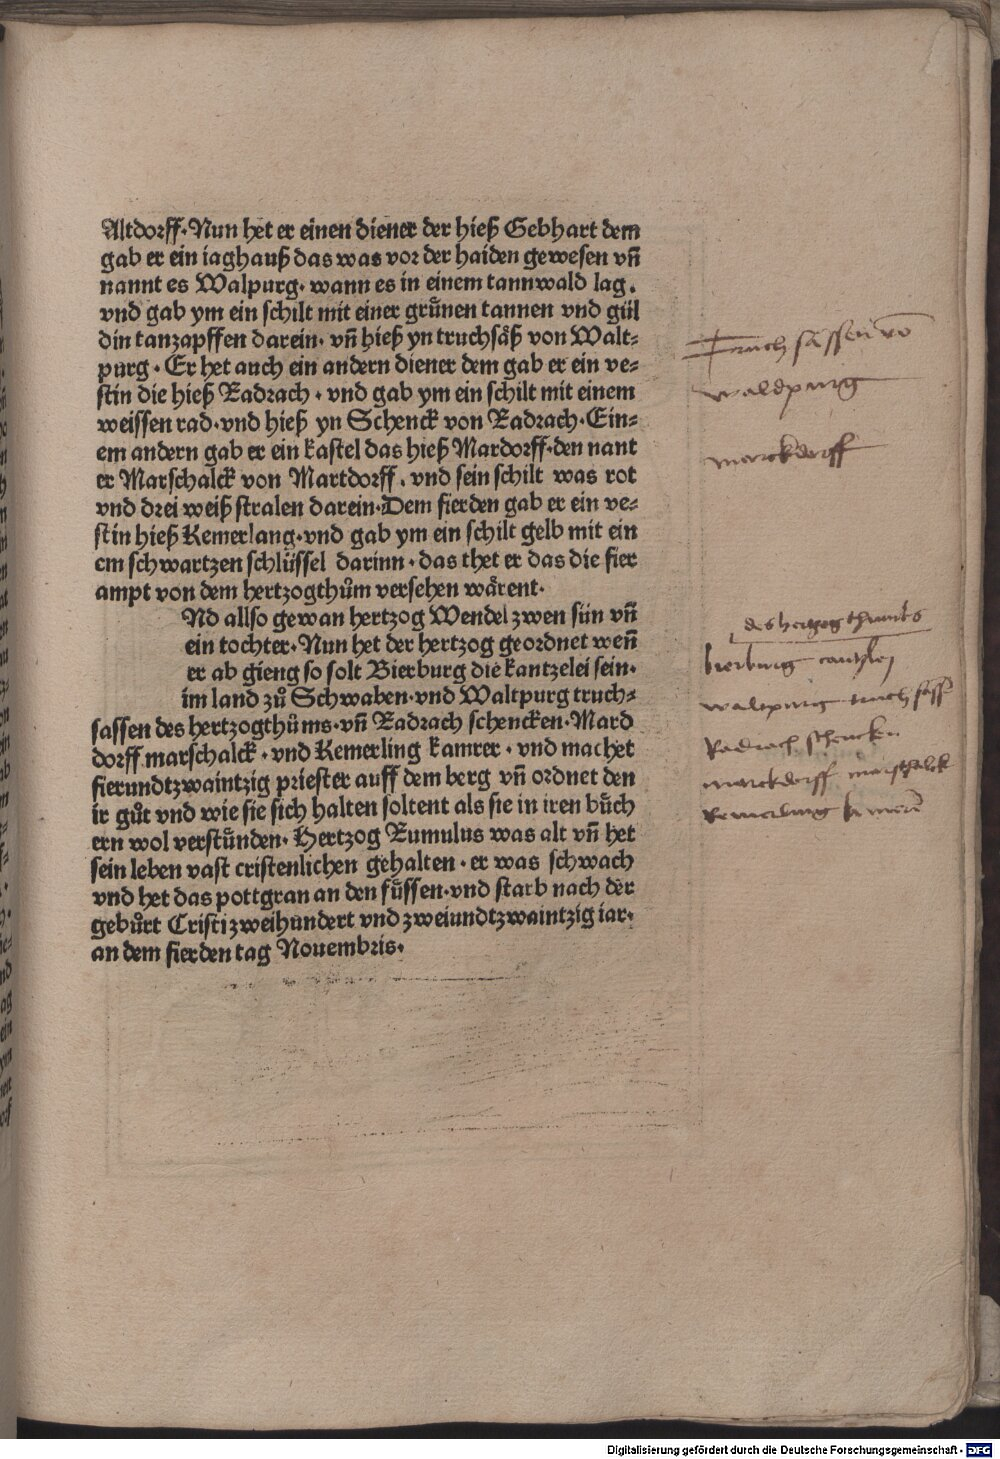 Altdorff·Nun het er einen diener der hieß Gebhart dem
gab er ein iaghauß das was vor der haiden gewesen vñ
nannt es Walpurg· wann es in einem tannwald lag.
vnd gab ym ein schilt mit einer grůnen tannen vnd gül
din tanzapffen darein· vñ hieß yn truchsåß von Walt⸗
purg· Er het auch ein andern diener dem gab er ein ve⸗
stin die hieß Radrach· vnd gab ym ein schilt mit einem
weissen rad·vnd hieß yn Schenck von Radrach·Ein⸗
em andern gab er ein kastel das hieß Mardorff·den nant
er Marschalck von Martdorff. vnd sein schilt was rot
vnd drei weiß stralen darein·Dem fierden gab er ein ve⸗
stin hieß Remerlang·vnd gab ym ein schilt gelb mit ein
em schwartzen schlüssel darinn· das thet er das die fier
ampt von dem hertzogthům versehen wårent·
Nd allso gewan hertzog Wendel zwen sün vñ
ein tochter·Nun het der hertzog geordnet weñ
er ab gieng so solt Bierburg die kantzelei sein·
im land zů Schwaben·vnd Waltpurg truch⸗
sassen des hertzogthüms·vñ Radrach schencken·Mard
dorff marschalck· vnd Remerling kamrer· vnd machet
fierundtzwaintzig priester auff dem berg vñ ordnet den
ir gůt vnd wie sie sich halten soltent als sie in iren bůch
ern wol verstůnden· Hertzog Rumulus was alt vñ het
sein leben vast cristenlichen gehalten· er was schwach
vnd het das pottgran an den fůssen·vnd starb nach der
gebůrt Cristi zweihundert vnd zweiundtzwaintzig iar·
an dem fierden tag Nouembris·
Truchsåssen võ
waldpurg
marckdorff
des hertzogthumbs
bierburg cantzley
waltpurg truchsåss
Radrach schencken
marckdorff marschalck
Remerling